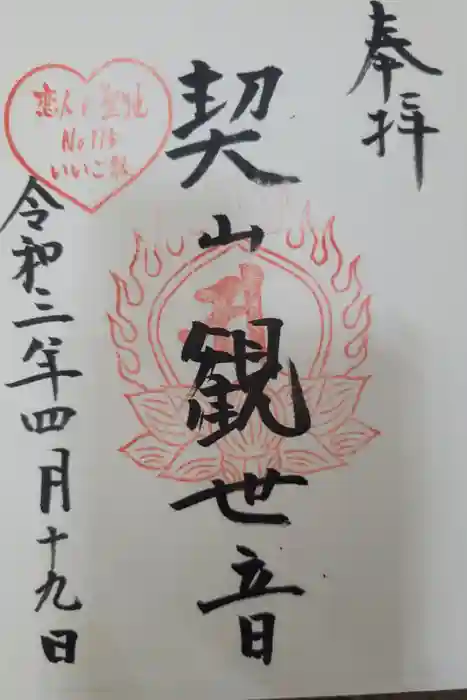 奉拝
契山観世音
令和三年四月十九日
恋人の聖地
No 115
いいご縁